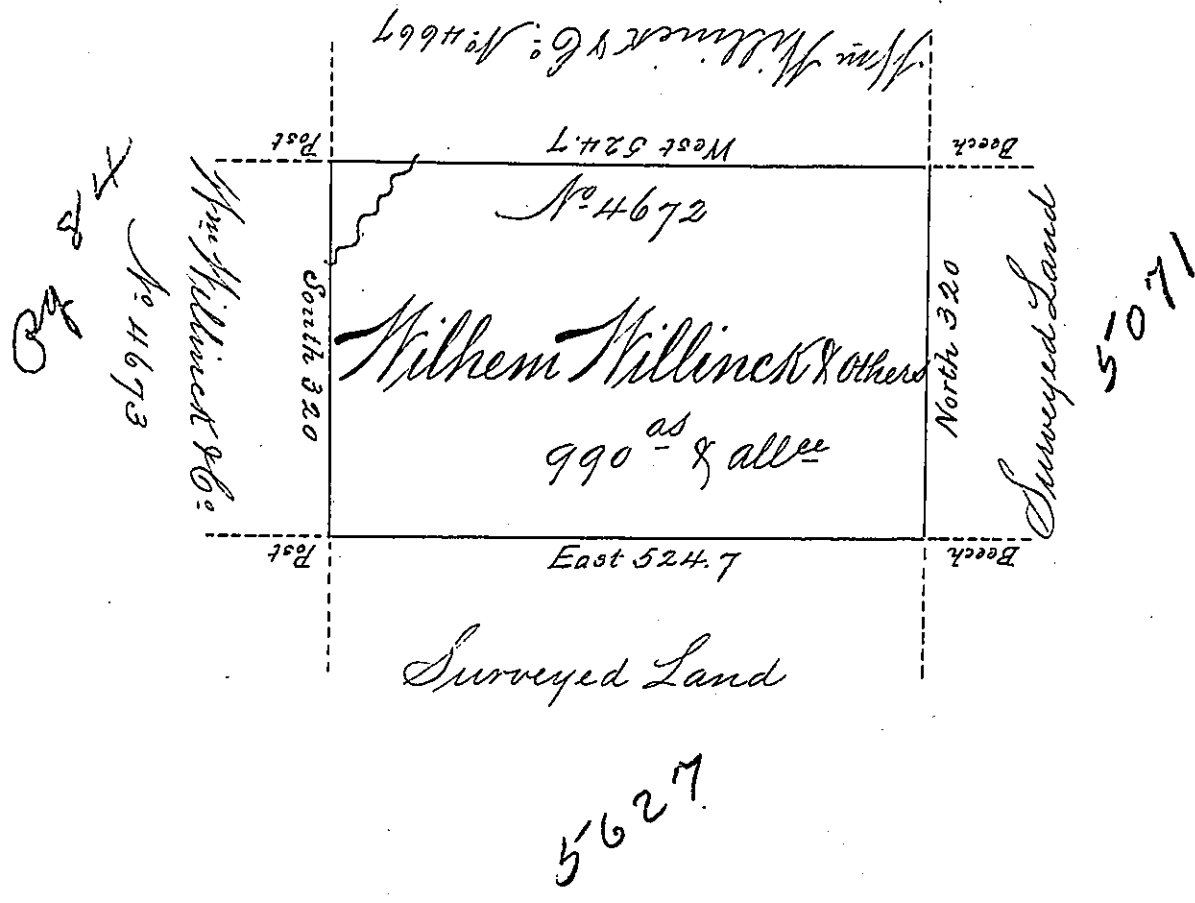 Wm Willinck & Co. No. 4667
Post
West 524.7
Beech
No. 4672
84
No. 4673
Wm Willinck & Co.
South 320
Wilhem Willinck & others
990 as & allce
North 320
Surveyed Land
5071
Post
East 524.7
Beech
Surveyed Land
5627